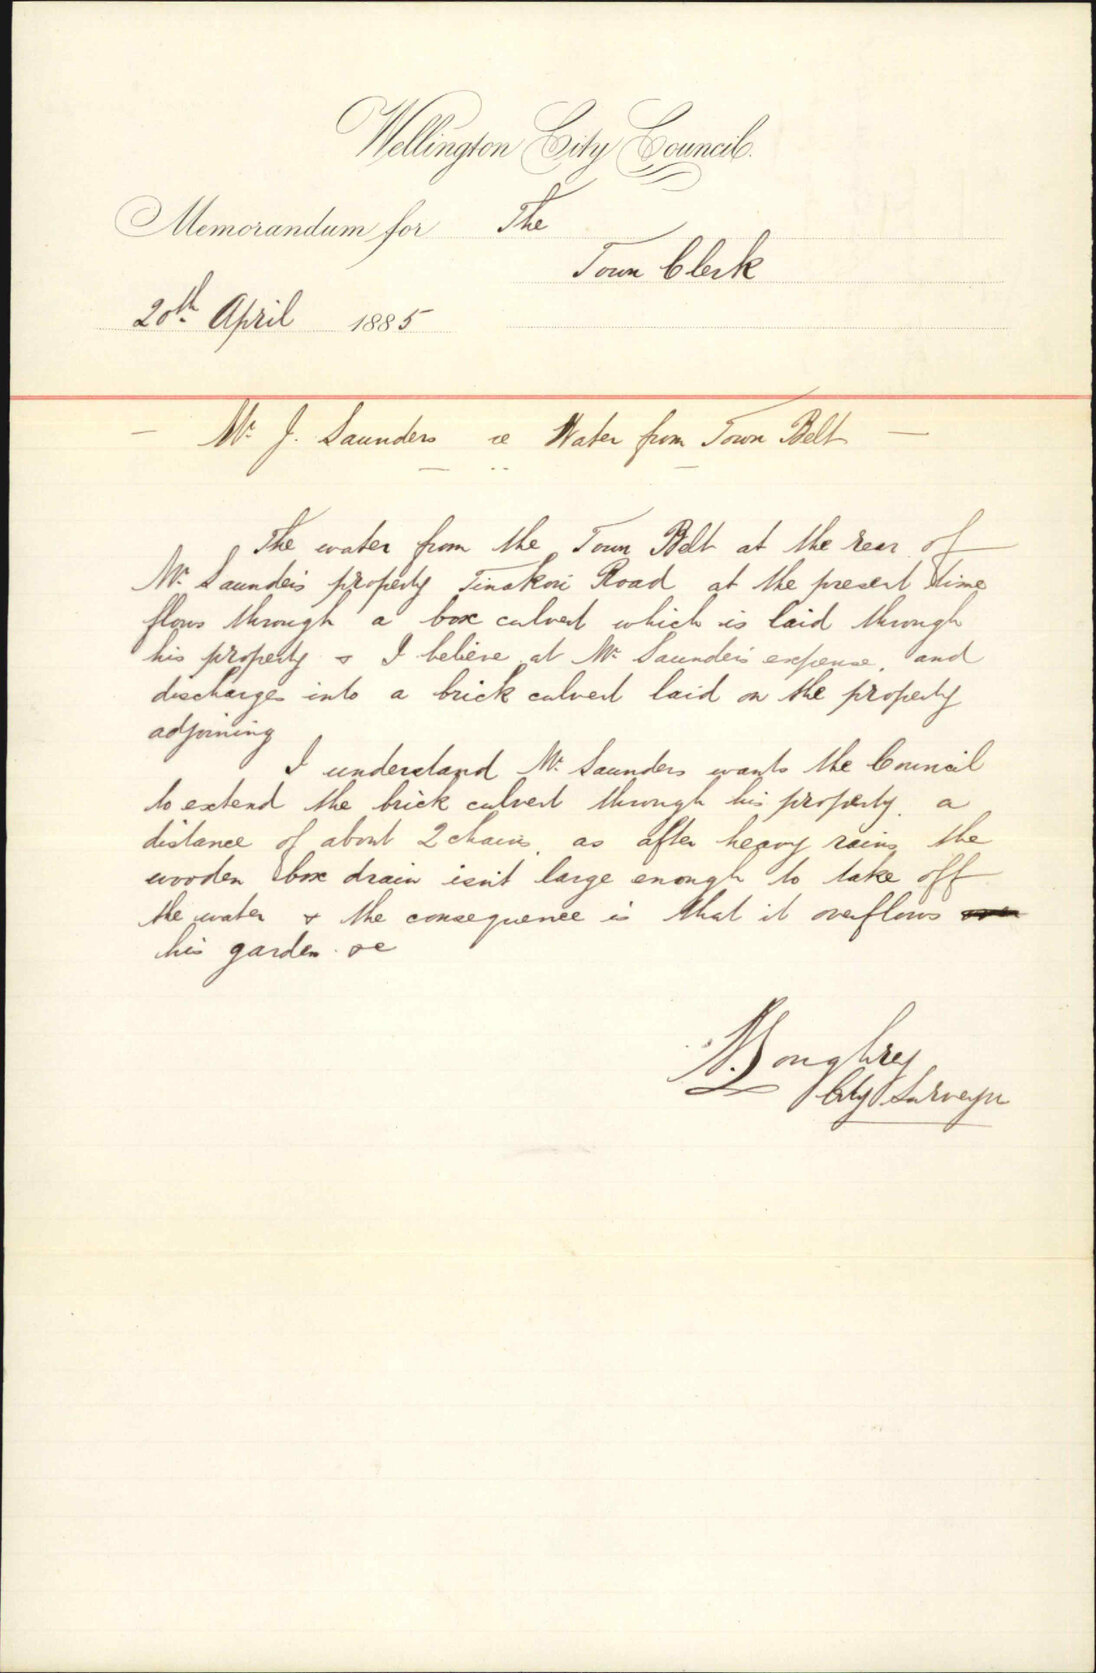 Wellington City Council.
Memorandum for The
Town Clerk
20th April 1885
— Mr J. Saunders re Water from Town Belt —
The water from the Town Belt at the rear of
Mr Saunders property Tinakori Road at the present time
flows through a box culvert which is laid through
his property & I believe at Mr Saunders expense, and
discharges into a brick culvert laid on the property
adjoining
I understand Mr Saunders wants the Council
to extend the brick culvert through his property, a
distance of about 2 chains, as after heavy rains the
wooden box drain isn't large enough to take off
the water & the consequence is that it overflows
his garden &c
Loughrey
City Surveyor